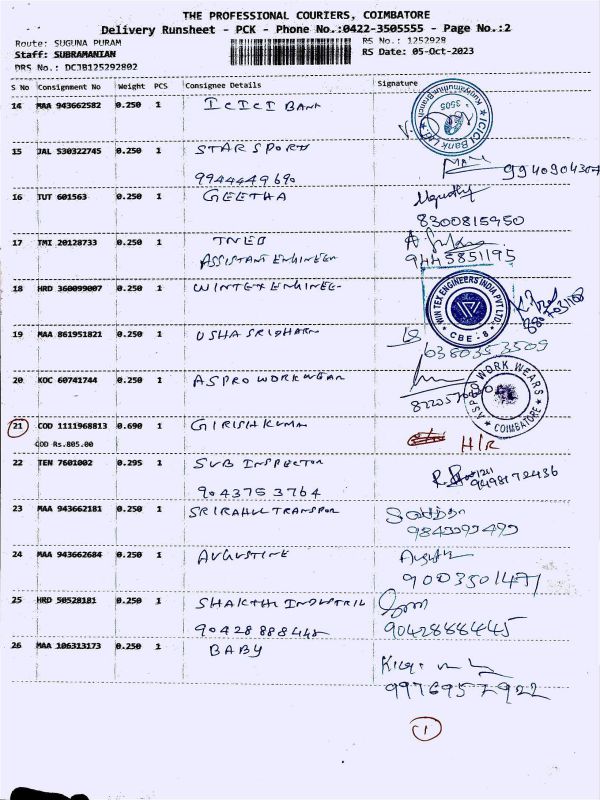 THE PROFESSIONAL COURIERS, COIMBATORE
Delivery Runsheet - PCK - Phone No.:0422-3505555 - Page No.:2
Route: SUGUNA PURAM
RS No.: 1252928
Staff: SUBRAMANIAN
RS Date: 05-Oct-2023
DRS No.: DCJB125292802
S No Consignment No Weight PCS Consignee Details Signature
14 MAA 943662582 0.250 1 ICICI BANK
ICICI Bank Ltd
3505
15 JAL 530322745 0.250 1 STAR SPORTS
9944449690
9940904307
16 TUT 601563 0.250 1 GEETHA
8300815950
17 TMI 20128733 0.250 1 TNEB
ASSISTANT ENGINEER
9445851195
18 HRD 360099007 0.250 1 WINTEX ENGINEE
WIN TEX ENGINEERS INDIA PVT LTD.
CBE : 8
19 MAA 861951821 0.250 1 USHA SRIDHARN
6380353509
20 KOC 60741744 0.250 1 ASPRO WORKWEAR
ASPRO WORK WEARS
COIMBATORE
21 COD 1111968813 0.690 1 GIRISH KUMAR
COD Rs.805.00
H/R
22 TEN 7601002 0.295 1 SUB INSPECTOR
9043753764
9498172436
23 MAA 943662181 0.250 1 SRI RAHUL TRANSPOR
24 MAA 943662684 0.250 1 AUGUSTINE
9003501471
25 HRD 50528181 0.250 1 SHAKTHI INDUSTRIL
90428 88445
9042888445
26 MAA 106313173 0.250 1 BABY
9976957922
1